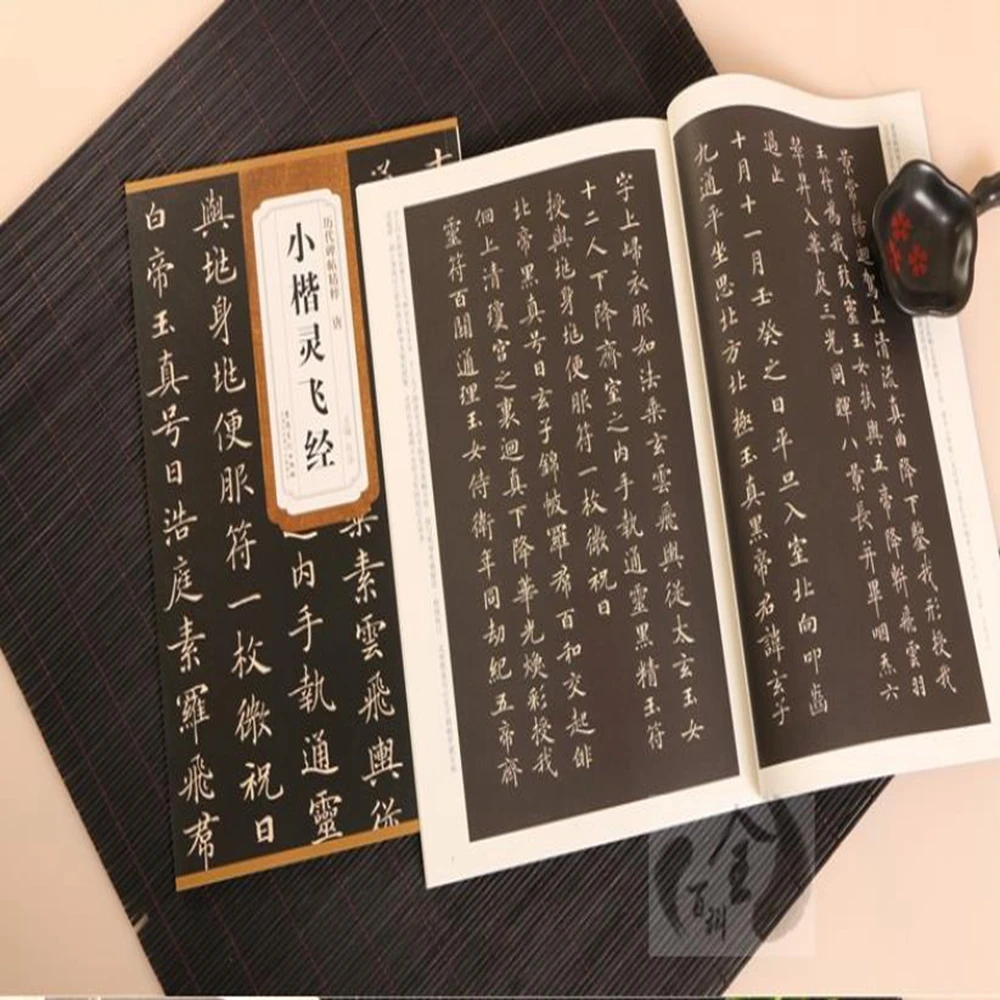 历代碑帖精粹 唐
小楷灵飞经
與地身地便服符一枚微祝曰
白帝玉真号曰浩庭素羅飛席
之内手執通靈
乘素雲飛輿從
景常陽迴駕上清流真曲降下鑒我形授我
玉符爲我致靈玉女扶與五帝降軿飛雲羽
輦昇入華庭三光同暉八景長并畢咽炁六
過止
十月十一月壬癸之日平旦入室北向叩齒
九通平坐思北方北極玉真黑帝君諱玄子
字上歸衣服如法乘玄雲飛輿從太玄玉女
十二人下降齋室之内手執通靈黑精玉符
授與地身地便服符一枚微祝曰
北帝黑真号曰玄子錦帔羅帬百和交起俳
佪上清瓊宮之裏迴真下降華光煥彩授我
靈符百關通理玉女侍衛年同劫紀五帝齋